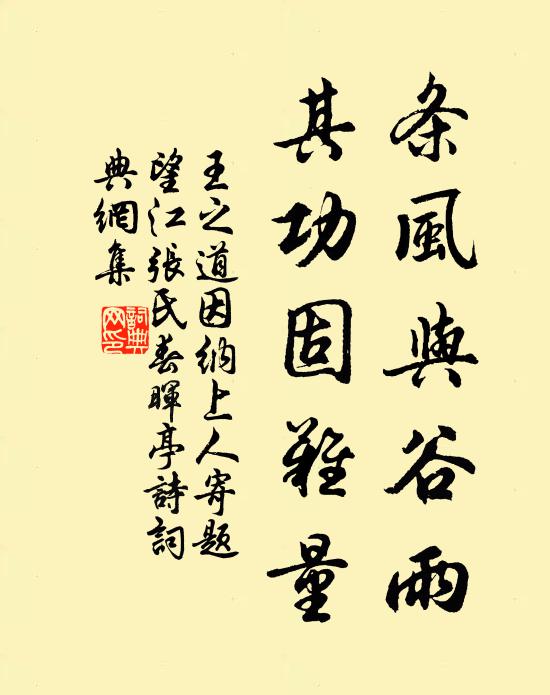 条風與谷雨
其功固難量
王之道因納上人寄題
望江張氏春暉亭詩詞
典網集
詞典
网印